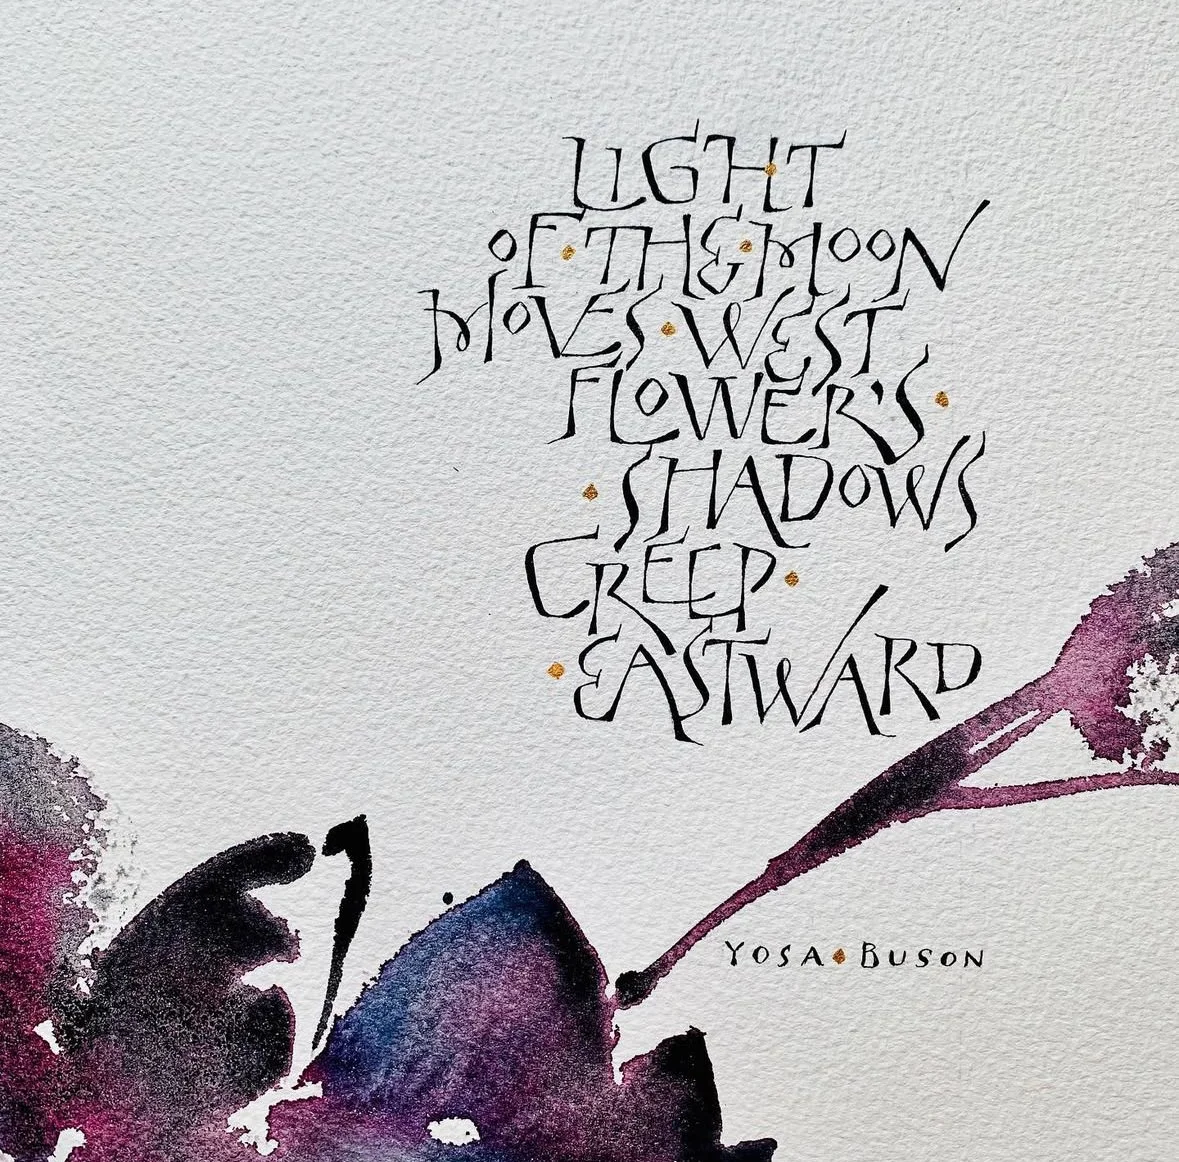 LIGHT
OF • THE • MOON
MOVES • WEST
FLOWER'S •
• SHADOWS
CREEP •
• EASTWARD
YOSA • BUSON